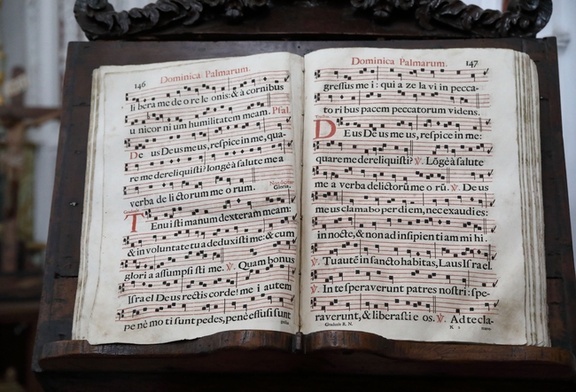 146
Dominica Palmarum.
libera me de ore leonis: & à cornibus
unicornium humilitatem meam. Psal.
De us Deus meus, respice in me, qua-
re me dereliquisti? longè à salute mea
verba delictorum meorum.
Gloria.
Tenuisti manum dexteram meam:
& in voluntate tua deduxisti me: & cum
gloria assumpsisti me. ℣. Quam bonus
Israel Deus rectis corde! mei autem
penè moti sunt pedes, penè effusi sunt
Dominica Palmarum.
147
gressus mei: quia zelavi in pecca-
toribus pacem peccatorum videns.
DEus Deus meus, respice in me:
quare me dereliquisti? ℣. Lõgè à salute
mea verba delictorum meorũ. ℣. Deus
meus clamabo per diem, nec exaudies:
in nocte, & non ad insipientiam mihi.
℣. Tu autẽ in sancto habitas, Laus Israel.
℣. In te speraverunt patres nostri: spe-
raverunt, & liberasti eos. ℣. Ad te cla-
Graduale R. N.
N 2